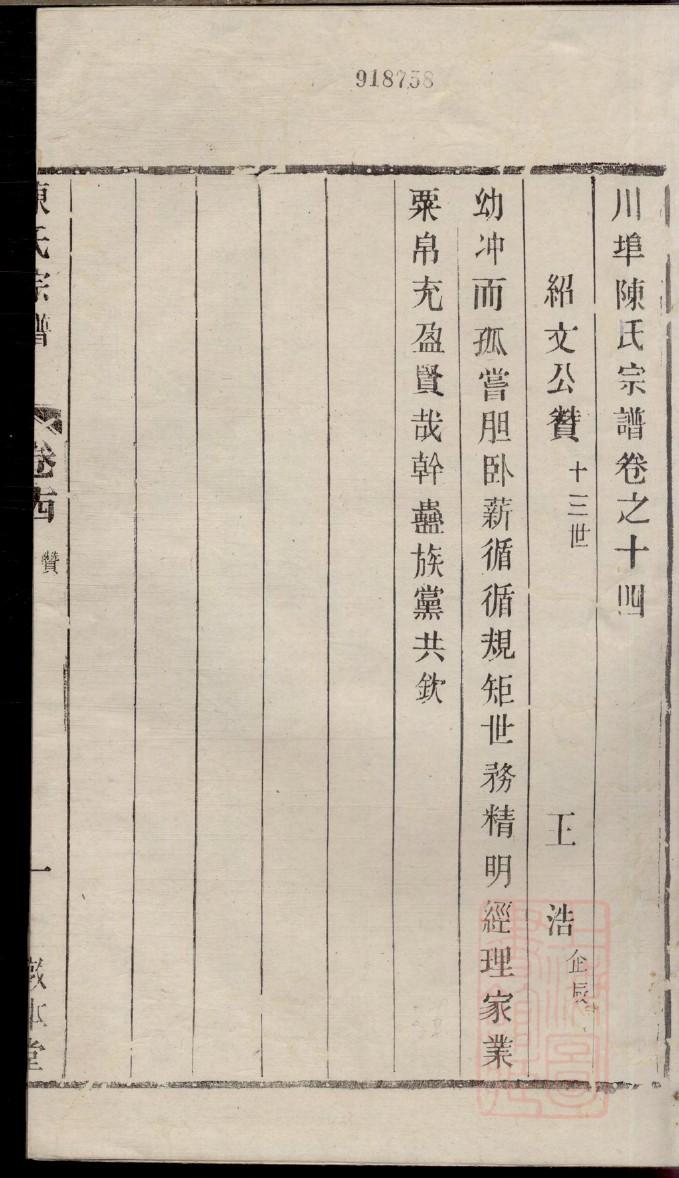 918758
川埠陳氏宗譜卷之十四
紹文公贊 十三世 王浩 企辰
幼冲而孤嘗胆卧薪循循規矩世務精明經理家業
粟帛充盈賢哉幹蠱族黨共欽
陳氏宗譜 卷十四 贊 一 敬本堂